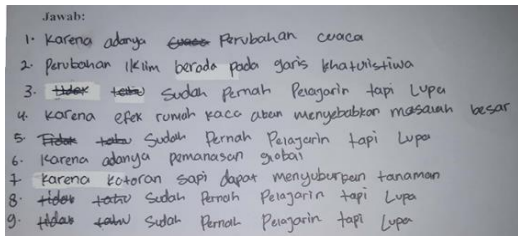 Jawab:
1. Karena adanya cuaca Perubahan cuaca
2. Perubahan iklim berada pada garis khatulistiwa
3. tidak tahu Sudah Pernah Pelajarin tapi Lupa
4. Karena efek rumah kaca akan menyebabkan masalah besar
5. Tidak tahu Sudah Pernah Pelajarin tapi Lupa
6. Karena adanya pemanasan global
7 Karena kotoran sapi dapat menyuburkan tanaman
8. tidak tahu Sudah Pernah Pelajarin tapi Lupa
9. tidak tahu Sudah Pernah Pelajarin tapi Lupa